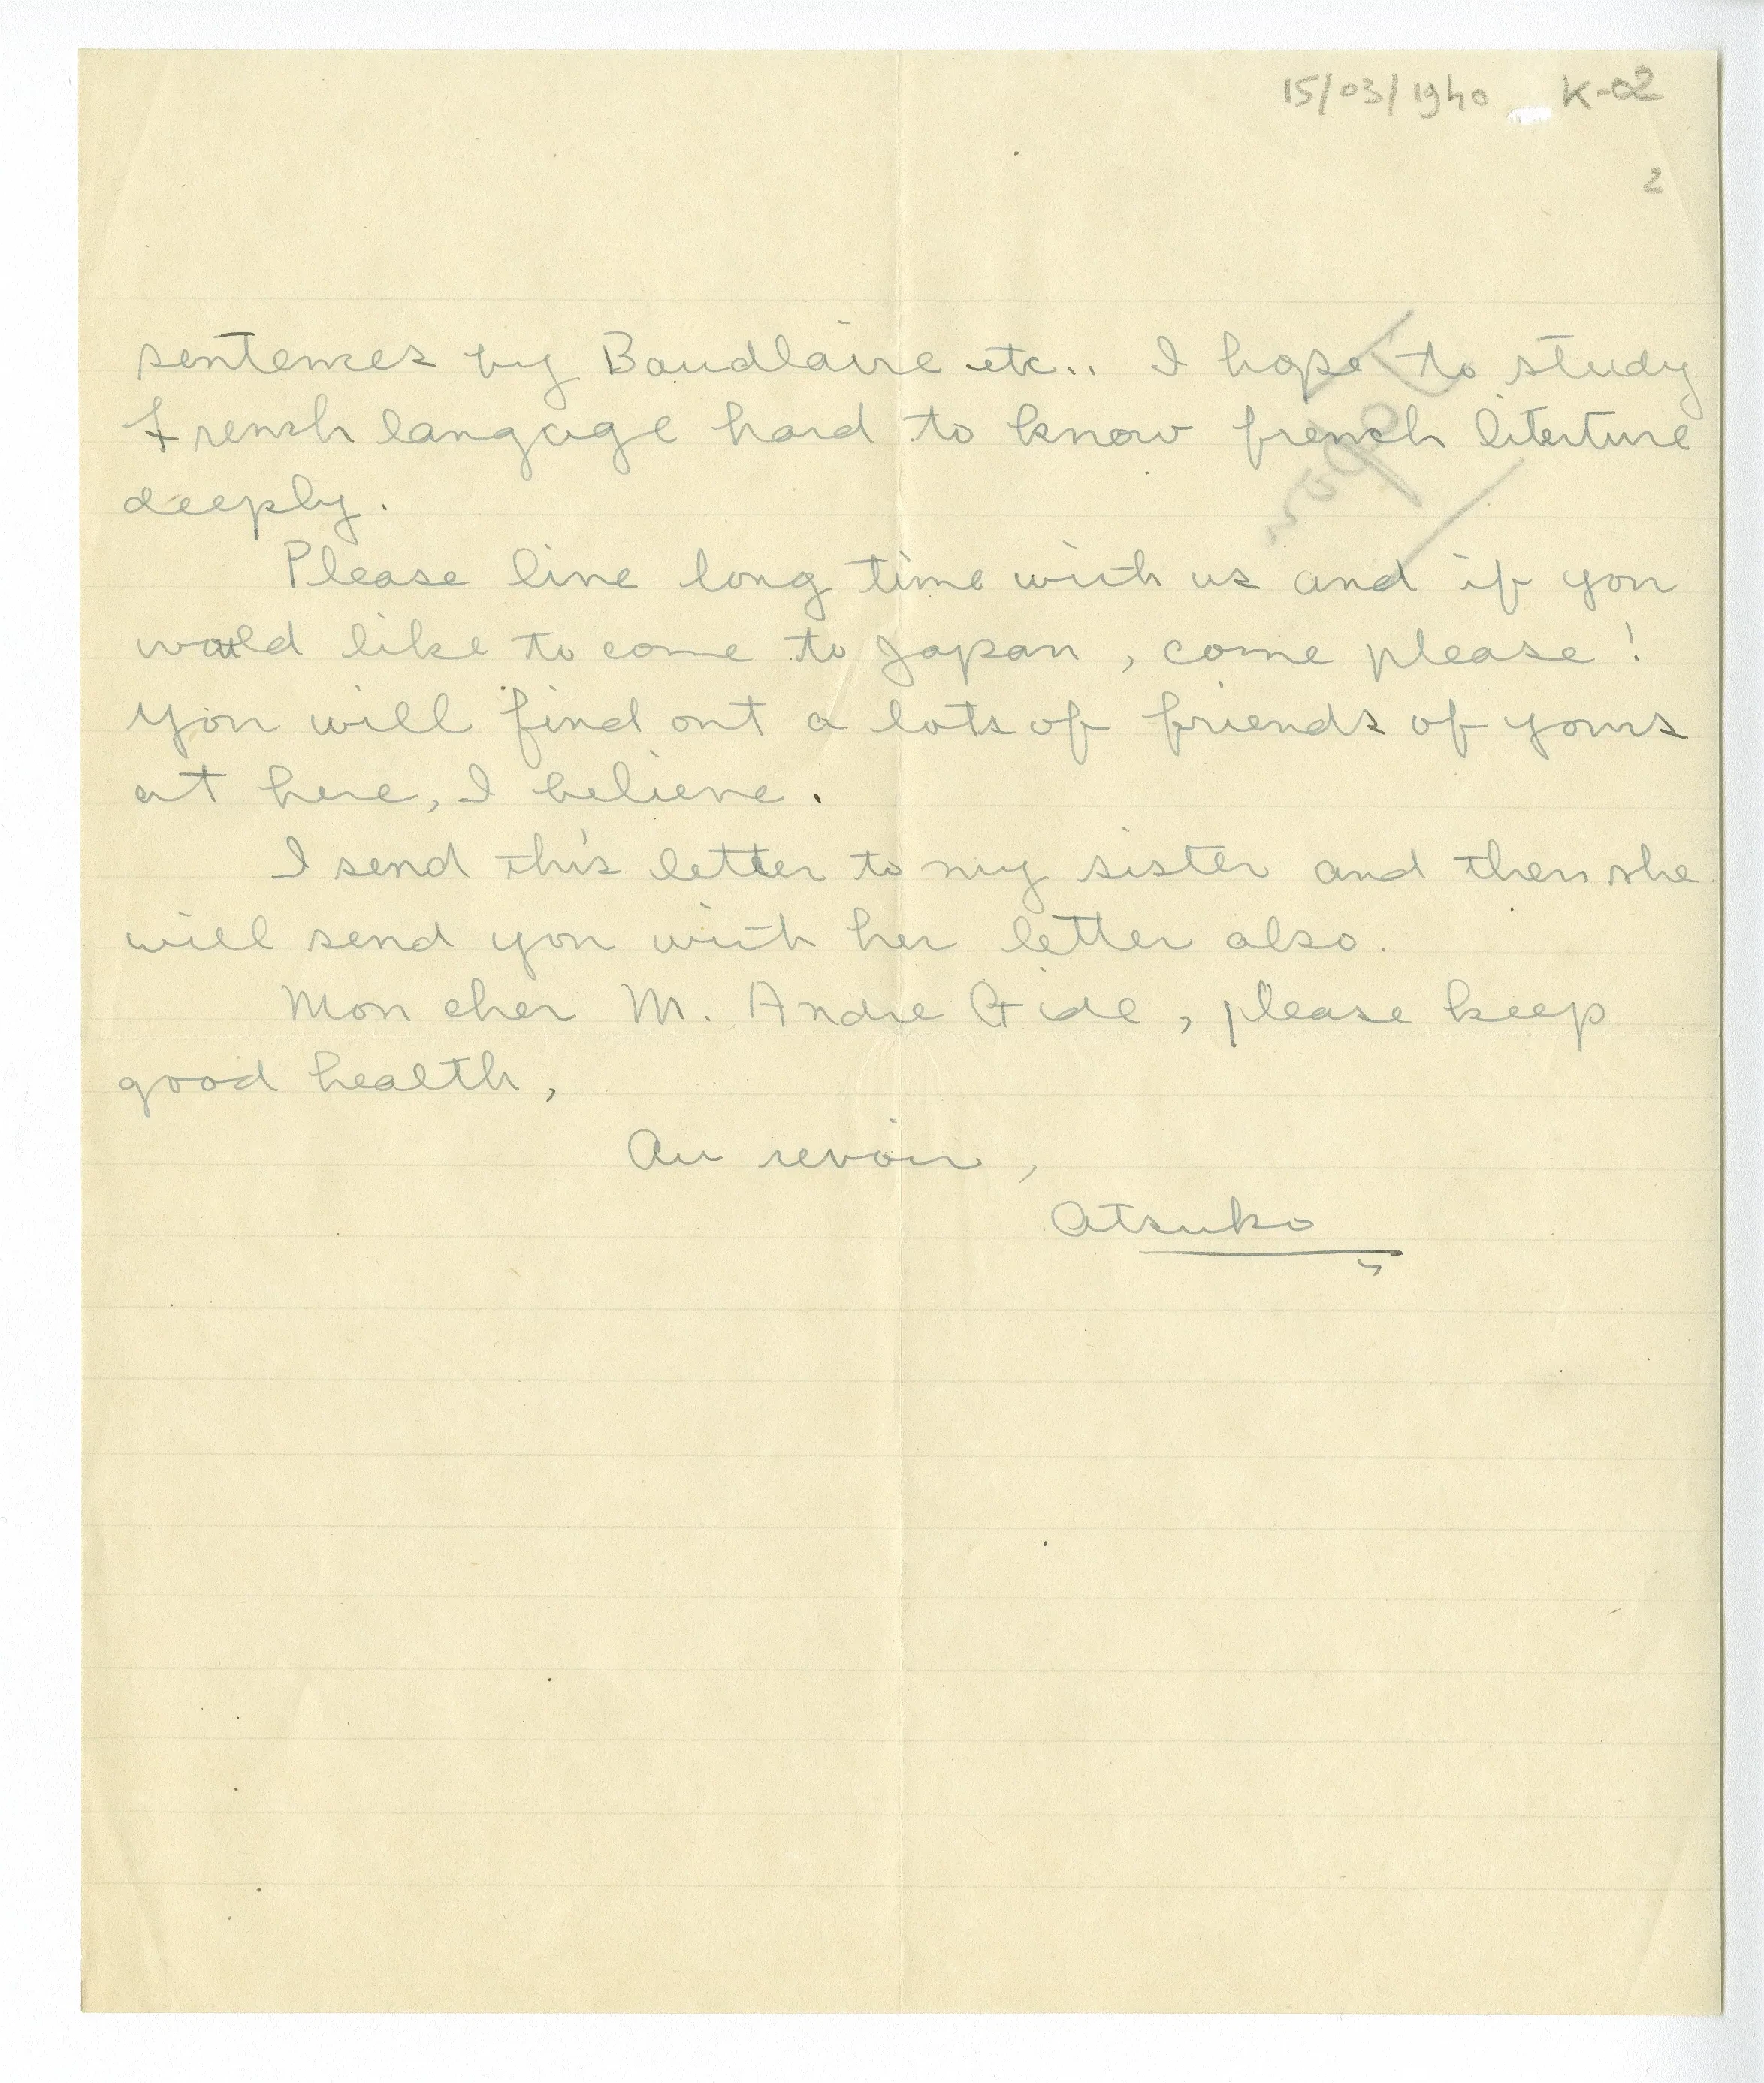 15/03/1940 K-02
2
sentences by Baudlaire etc.. I hope to study
French langage hard to know french literture
deeply.
Please live long time with us and if you
would like to come to Japan, come please!
You will find out a lots of friends of yours
at here, I believe.
I send this letter to my sister and then she
will send you with her letter also.
Mon cher M. Andre Gide, please keep
good health,
Au revoir,
Atsuko